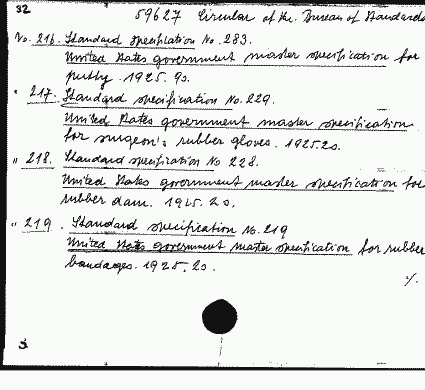 32
59627 Circular of the Bureau of Standards
No. 216. Standard specification No. 283.
United States government master specification for
putty. 1925. 9s.
" 217. Standard specification No. 229.
United States government master specification
for surgeon's rubber gloves. 1925. 2s.
" 218. Standard specification No. 228.
United States government master specification for
rubber dam. 1925. 2s.
" 219. Standard specification No. 219
United States government master specification for rubber
bandages. 1925. 2s.
./.